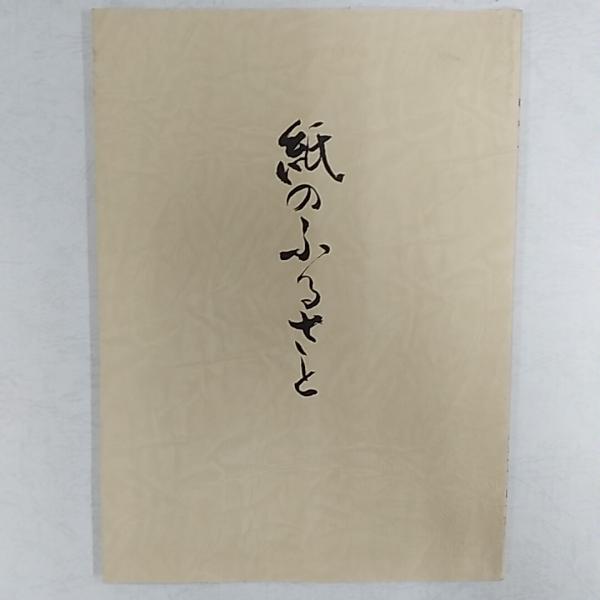 紙のふるさと